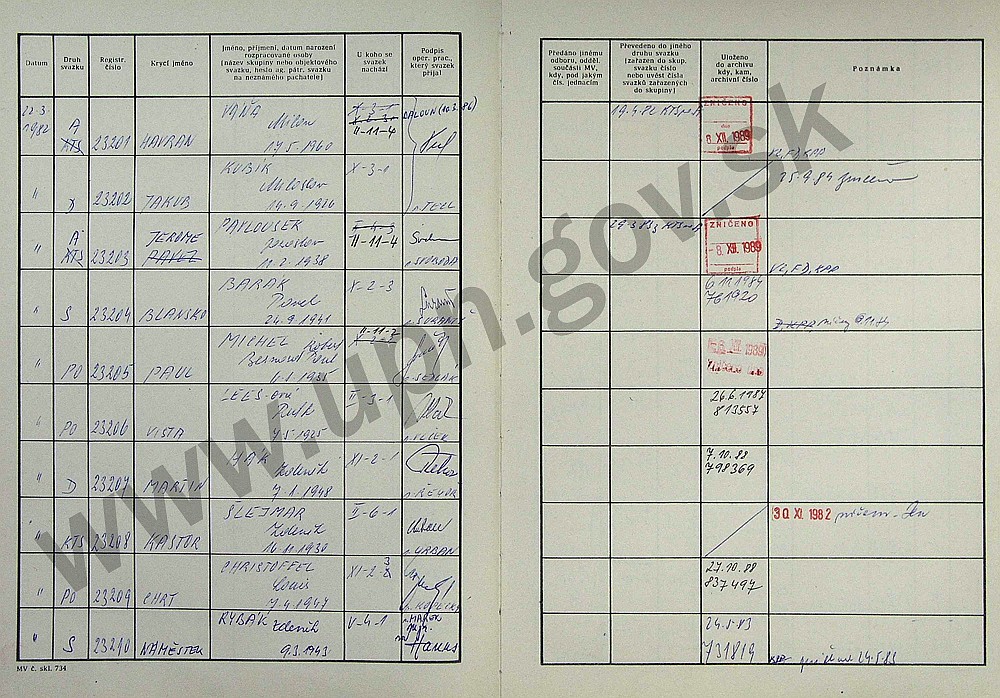 Datum
Druh
svazku
Registr.
číslo
Krycí jméno
Jméno, příjmení, datum narození
rozpracované osoby
(název skupiny nebo objektového
svazku, heslo ag. pátr. svazku
na neznámého pachatele)
U koho se
svazek
nachází
Podpis
oper. prac.,
který svazek
přijal
Předáno jinému
odboru, odděl.
součásti MV,
kdy, pod jakým
čís. jednacím
Převedeno do jiného
druhu svazku
(zařazen do skup.
svazku číslo
nebo uvést čísla
svazků zařazených
do skupiny)
Uloženo
do archivu
kdy, kam,
archivní číslo
Poznámka
22-3.
1982
A
KTS 23201 HAVRAN
VAŇA
Milan
17.5.1960
X-3-1
II-11-4
ZNIČENO
8 XII. 1989
podpis
" D 23202 JAKUB
KUBÍK
Miloslav
14.9.1926
X-3-1
25.9.84
" A
KTS 23203 JEROME
PAVEL
PAVLOUSEK
Jaroslav
11.2.1938
II-11-4
SVOBODA
ZNIČENO
-8. XII. 1989
podpis
" S 23204 BLANSKO
BARÁK
Pavel
24.9.1941
X-2-3
6.11.1984
761920
" PO 23205 PAUL
MICHEL
II-11-2
SEDLÁK
" PO 23206 VISTA
Ruth
7.5.1925
II-3-1
26.6.1987
813557
" D 23207 MARTIN
HÁK
Zdeněk
7.1.1948
XI-2-1
ŘEHOŘ
7.10.88
798369
" KTS 23208 KASTOR
ŠLEJMAR
Zdeněk
14.11.1930
II-6-1
URBAN
30 XI. 1982
" PO 23209 CHRT
CHRISTOFFEL
Louis
7.4.1947
XI-2-3
KOPECKÝ
27.10.88
837497
" S 23210 NÁMĚSTEK
RYBÁK Zdeněk
9.3.1943
V-4-1
MAREK
Hanus
24.5.83
731819
24.5.83
MV č. skl. 734
www.upn.gov.sk